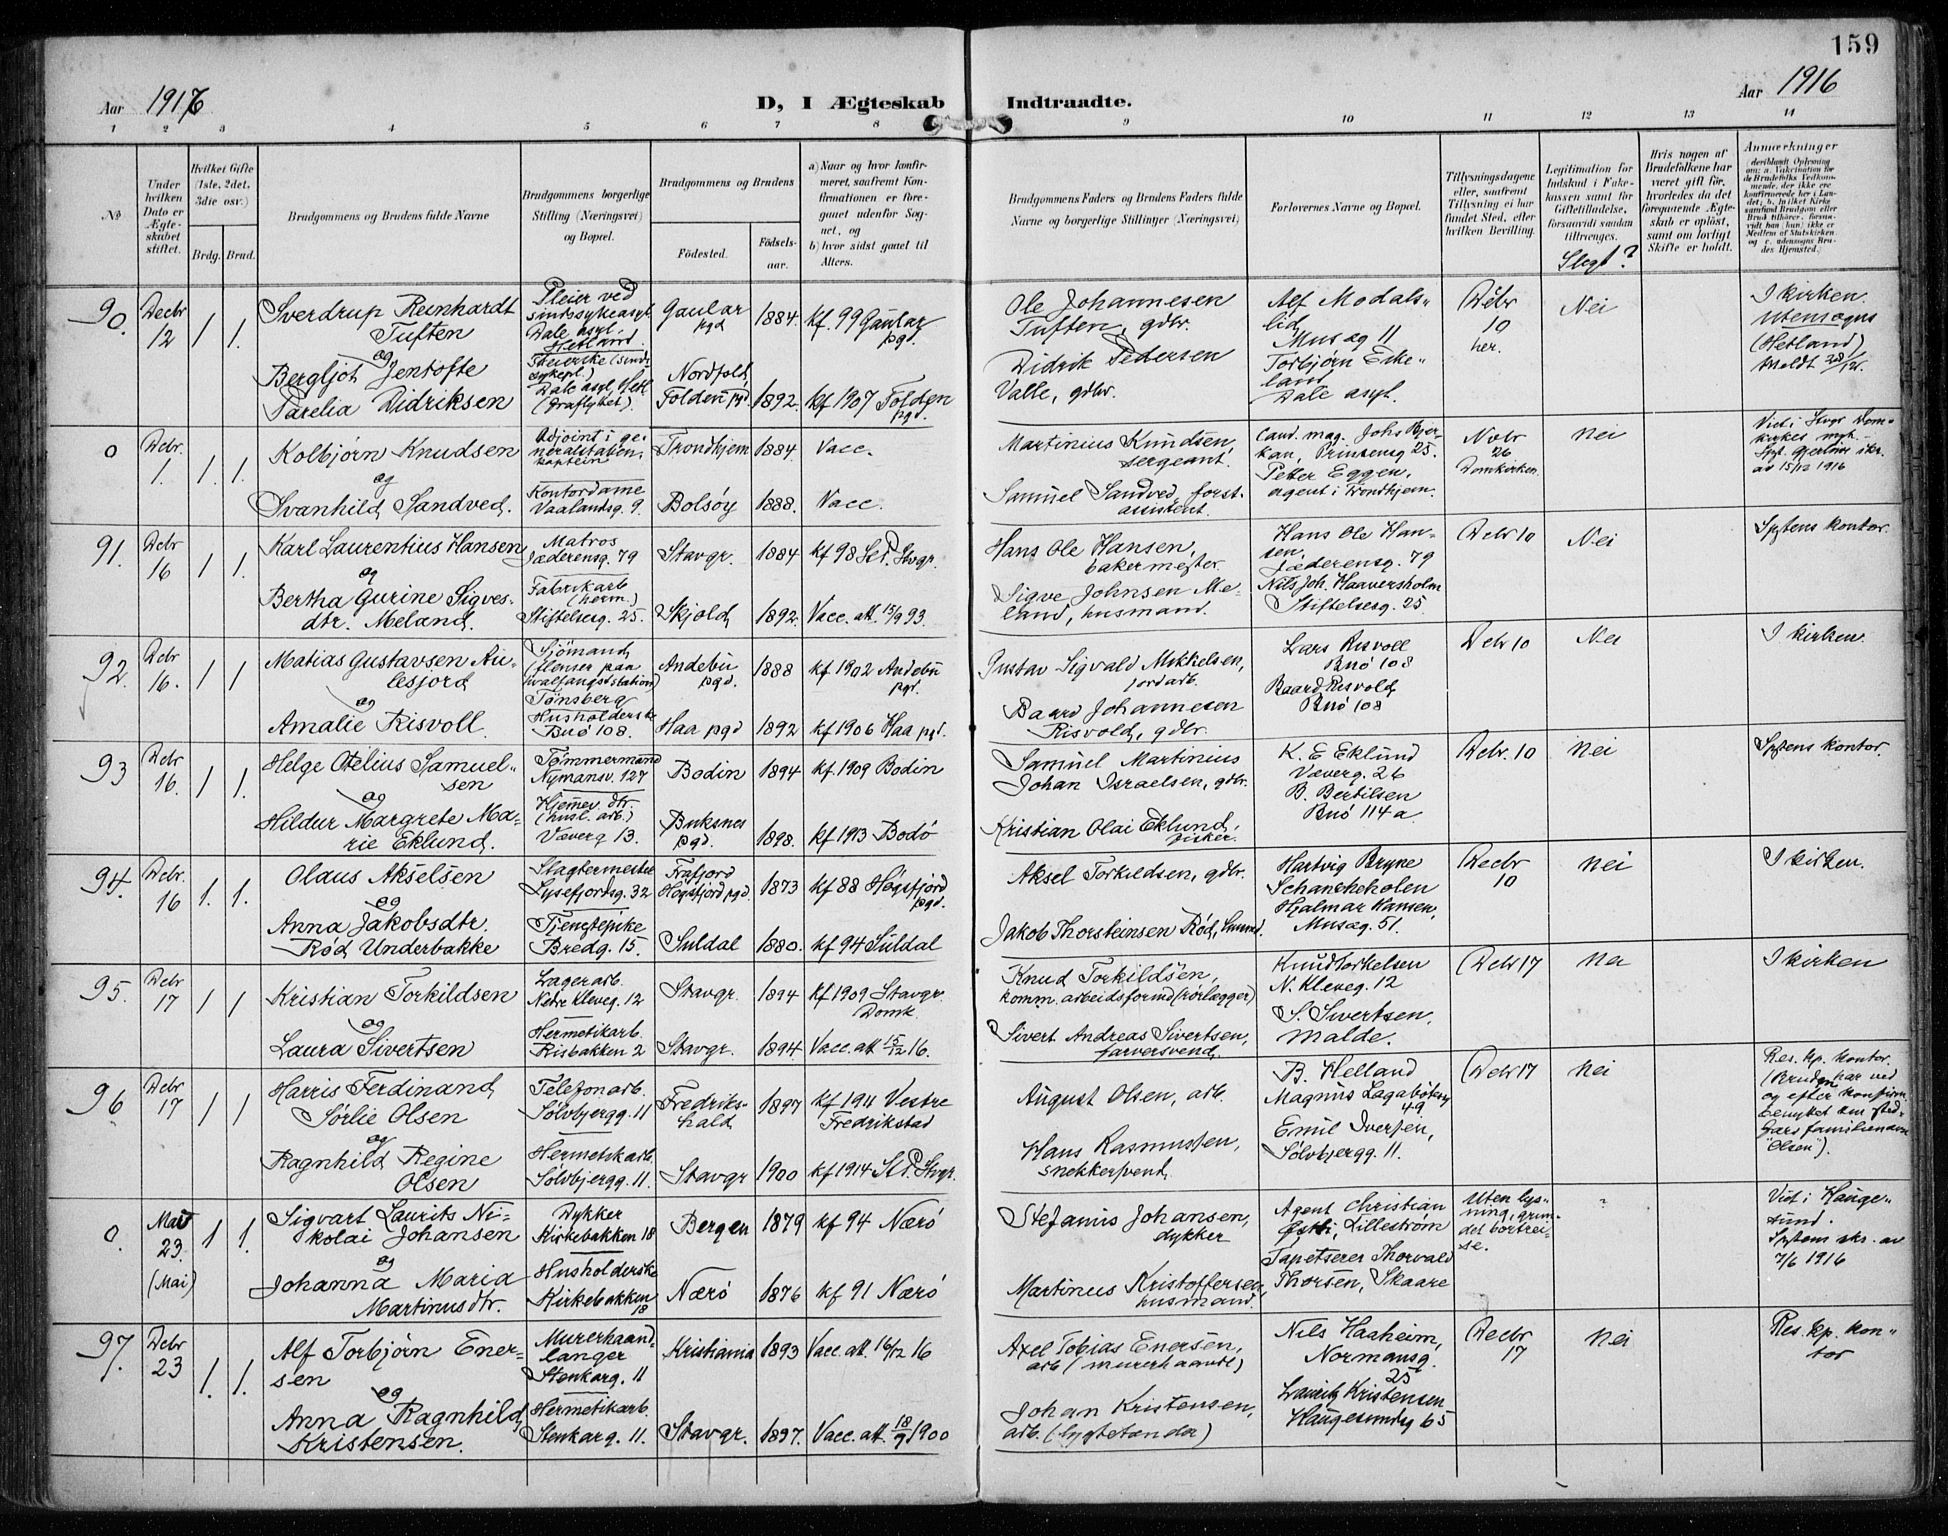 159
Aar 1916
D, I Ægteskab Indtraadte.
Aar 1916
1 2 3 4 5 6 7 8 9 10 11 12 13 14
№
Under hvilken Dato er Ægteskabet stiftet.
Hvilket Gifte (1ste, 2det, 3die osv.)
Brdg. Brud.
Brudgommens og Brudens fulde Navne
Brudgommens borgerlige Stilling (Næringsvei) og Bopæl.
Brudgommens og Brudens
Fødested.
Fødselsaar.
a) Naar og hvor konfirmeret, saafremt Konfirmationen er foregaaet udenfor Sognet, og
b) hvor sidst gaaet til Alters.
Brudgommens Faders og Brudens Faders fulde Navne og borgerlige Stillinger (Næringsvei)
Forlovernes Navne og Bopæl.
Tillysningsdagene eller, saafremt Tillysning ei har fundet Sted, efter hvilken Bevilling.
Legitimation for Indskud i Enkekassen samt for Giftetilladelse, forsaavidt saadan tiltrænges.
Slegt?
Hvis nogen af Brudefolkene har været gift før, hvorledes da det foregaaende Ægteskab er opløst, samt om lovligt Skifte er holdt.
Anmærkninger
90.
Decbr 12
1 1.
Sverdrup Reinhardt
Tuften
og
Bergljot Jentofte
Parelia Didriksen
Pleier ved
sindssykeasyl.
Dale asyl.
Hetland
Pleierske (sinds
sykepl.)
Dale asyl, Hetl.
Gaular
pgd
1884.
kf 99 Gaular
pgd.
Nordfold,
Folden pgd
1892.
kf 1907 Folden
pgd.
Ole Johannesen
Tuften, gdbr.
Didrik Pedersen
Valle, gdbr.
Alf Modals-
lid,
Musæg 11
Torbjørn Eike-
land,
Dale asyl.
Dcbr
10
her.
Nei
I kirken.
Utensogns
(Hetland)
0
Dcbr.
1.
1. 1.
Kolbjørn Knudsen
og
Svanhild Sandved.
Adjoint i ge-
neralstaben,
kaptein
Kontordame
Vaalandsg. 9.
Trondhjem
1884.
Vacc.
Bolsöy
1888.
Vacc.
Martinius Knudsen,
sergeant.
Samuel Sandved, forst-
assistent.
Cand. mag. Johs Bjer-
kan, Prinsensg 25.
Petter Eggen,
agent i Trondhjem.
Novbr
26
Domkirken.
Nei
Viet i Stvgr Dom-
kirke
av 15/12 1916
91.
Dcbr
16
1 1.
Karl Laurentius Hansen
og
Bertha Gurine Sigves-
dtr. Meland.
Matros
Jæderensg. 79
Fabrikarb
(herm.)
Stiftelsesg. 25.
Stavgr.
1884
kf 98 St. P. Stvgr.
Skjold
1892.
Vacc. att. 15/9 93.
Hans Ole Hansen,
bakermester
Sigve Johnsen Me-
land, husmand.
Hans Ole Han-
sen,
Jæderensg. 79
Nils Joh. Haaversholm
Stiftelsesg. 25
Dcbr 10
Nei
Sptens kontor.
92.
Dcbr
16.
1 1
Matias Gustavsen Au-
lesjord
og
Amalie Risvoll.
Sjömand
(flenser paa
hvalfangststation)
Tønsberg
Husholderske
Buö 108.
Andebu
pgd.
1888
kf 1902 Andebu
pgd.
Haa pgd
1892
kf 1906 Haa pgd.
Gustav Sigvald Mikkelsen,
jordarb.
Baard Johannesen
Risvold, gdbr.
Lars Risvoll
Buö 108
Baard Risvold,
Buö 108
Dcbr 10
Nei
I kirken.
93
Dcbr
16.
1 1.
Helge Otelius Samuel-
sen
og
Hildur Margrete Ma-
rie Eklund.
Tømmermand
Nymansv. 127
Hjemmev. dtr.
(husl. arb.)
Væverg 13.
Bodin
1894
kf 1909 Bodin
Buksnes
pgd.
1898.
kf 1913 Bodö
Samuel Martinius
Johan Israelsen, gdbr.
Kristian Olai Eklund,
fisker.
K. E. Eklund
Væverg. 26
B. Bertilsen
Buö 114 a.
Dcbr. 10
Nei
Sptens kontor.
94.
Dcbr.
16
1. 1.
Olaus Akselsen
og
Anna Jakobsdtr.
Rød Underbakke
Slagtermester
Lysefjordsg. 32
Tjenestepike
Bredg. 15.
Frafjord
Høgsfjord pgd.
1873
kf 88 Høgsfjord
pgd.
Suldal
1880.
kf 94 Suldal
Aksel Torkildsen, gdbr.
Jakob Thorsteinsen Rød, husmd.
Hartvig Bryne
Schancheholen
Hjalmar Hansen,
Musæg. 51.
Decbr
10
Nei
I kirken.
95.
Dcbr
17
1 1
Kristian Torkildsen
og
Laura Sivertsen
Lagerarb.
Nedre Kleveg. 12
Hermetikarb.
Risbakken 2
Stavgr.
1894
kf 1909 Stavgr.
Domk.
Stavgr.
1894.
Vacc. att 15/12 16.
Knud Torkildsen,
komm. arbeidsformd (rørlægger)
Sivert Andreas Sivertsen,
farversvend.
Knud Torkelsen
N. Kleveg. 12
S. Sivertsen,
Malde.
Dcbr 17
Nei
I kirken
96
Dcbr
17
1 1
Harris Ferdinand
Sørlie Olsen
og
Ragnhild Regine
Olsen
Telefonarb.
Sølvbjergg. 11
Hermetikarb.
Sølvbjergg. 11.
Fredriks-
hald
1897
kf 1911 Vestre
Fredrikstad
Stavgr
1900
kf 1914 St. P. Stvgr.
August Olsen, arb.
Hans Rasmussen,
snekkersvend.
B. Helland
Magnus Lagabøtersg
49
Emil Iversen,
Sølvbjergg. 11.
Dcbr 17
Nei
Res. kp. kontor.
(Bruden har ved
og efter konfirm.
benyttet sin sted-
fars familienavn
"Olsen").
0.
Mai
23.
(Mai)
1 1.
Sigvart Laurits Ni-
kolai Johansen
og
Johanna Maria
Martinusdtr.
Dykker
Kirkebakken 18
Husholderske
Kirkebakken
18
Bergen
1879
kf 94 Nærö
Nærö
1876
kf 91 Nærö
Stefanius Johansen,
dykker
Martinus Kristoffersen,
husmand.
Agent Christian
Østbi, Lillestrøm
Tapetserer Thorvald
Thorsen, Skaare
Uten lys-
ning, grun-
det bortrei-
se.
?
Viet i Hauge-
sund.
Sptens skr. av
7/6 1916
97.
Dcbr
23
1. 1.
Alf Torbjørn Ener-
sen
og
Anna Ragnhild
Kristensen.
Murerhaand-
langer
Stenkarg. 11
Hermetikarb.
Stenkarg. 11.
Kristiania
1893
Vacc. att. 16/12 16
Stavgr.
1897.
Vacc. att. 18/9 1900
Axel Tobias Enersen,
arb (murerhaandl)
Johan Kristensen,
arb. (lygtetænder)
Nils Haaheim,
Normansg.
25
Lauritz Kristensen
Haugesundsg 65
Decbr
17
Nei
Res. kp. kon-
tor